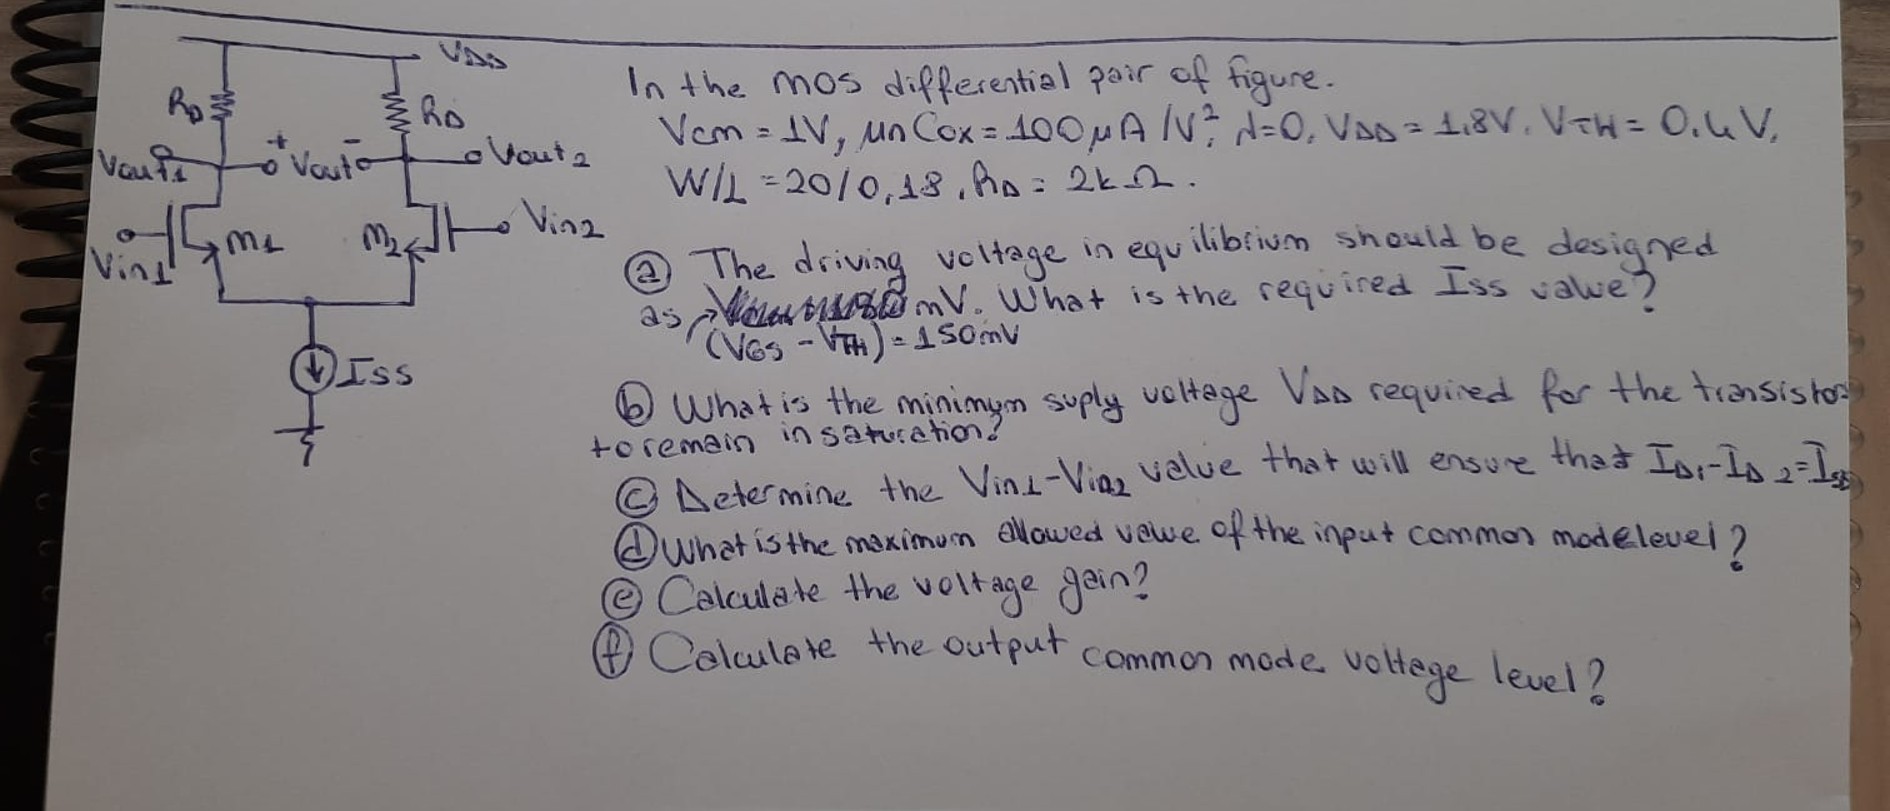 VDD
RD
RD
Vout1
+ Vout -
Vout2
Vin1
M1
M2
Vin2
ISS
In the mos differential pair of figure.
Vcm = 1V, μnCox = 100μA/V², λ=0, VDD = 1.8V. VTH = 0.4V,
W/L = 20/0,18, RD = 2kΩ.
(a) The driving voltage in equilibrium should be designed
as mV. What is the required Iss value?
(VGS - VTH) = 150mV
(b) What is the minimum suply voltage VDD required for the transistor
to remain in saturation?
(c) Determine the Vin1-Vin2 value that will ensure that ID1-ID2=Iss
(d) What is the maximum allowed value of the input common mode level?
(e) Calculate the voltage gain?
(f) Calculate the output common mode voltage level?